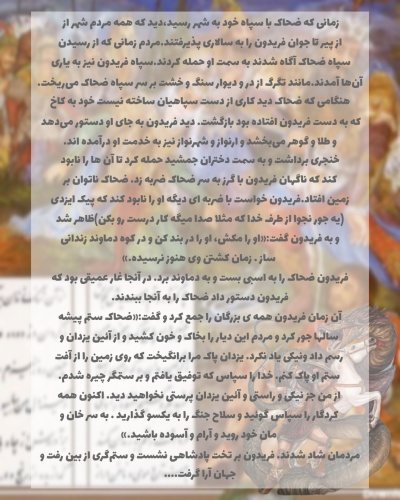 زمانی که ضحاک با سپاه خود به شهر رسید،دید که همه مردم شهر از
از پیر تا جوان فریدون را به سالاری پذیرفتند.مردم زمانی که از رسیدن
سپاه ضحاک آگاه شدند به سمت او حمله کردند.سپاه فریدون نیز به یاری
آن‌ها آمدند.مانند تگرگ از در و دیوار سنگ و خشت بر سر سپاه ضحاک می‌ریخت.
هنگامی که ضحاک دید کاری از دست سپاهیان ساخته نیست خود به کاخ
که به دست فریدون افتاده بود بازگشت. دید فریدون به جای او دستور می‌دهد
و طلا و گوهر می‌بخشد و ارنواز و شهرنواز نیز به خدمت او درآمده اند.
خنجری برداشت و به سمت دختران جمشید حمله کرد تا آن ها را نابود
کند که ناگهان فریدون با گرز به سر ضحاک ضربه زد. ضحاک ناتوان بر
زمین افتاد.فریدون خواست با ضربه ای دیگه او را نابود کند که پیک ایزدی
(یه جور نجوا از طرف خدا که مثلا صدا میگه کار درست رو بکن)ظاهر شد
و به فریدون گفت:«او را مکش، او را در بند کن و در کوه دماوند زندانی
ساز . زمان کشتن وی هنوز نرسیده.»
فریدون ضحاک را به اسبی بست و به دماوند برد. در آنجا غار عمیقی بود که
فریدون دستور داد ضحاک را به آنجا ببندند.
آن زمان فریدون همه ی بزرگان را جمع کرد و گفت:«ضحاک ستم پیشه
سالها جور کرد و مردم این دیار را بخاک و خون کشید و از آئین یزدان و
رسم داد ونیکی یاد نکرد. یزدان پاک مرا برانگیخت که روی زمین را از آفت
ستم او پاک کنم. خدا را سپاس که توفیق یافتم و بر ستمگر چیره شدم.
از من جز نیکی و راستی و آئین یزدان پرستی نخواهید دید. اکنون همه
کردگار را سپاس گوئید و سلاح جنگ را به یکسو گذارید . به سر خان و
مان خود روید و آرام و آسوده باشید.»
مردمان شاد شدند. فریدون بر تخت پادشاهی نشست و ستم‌گری از بین رفت و
جهان آرا گرفت....